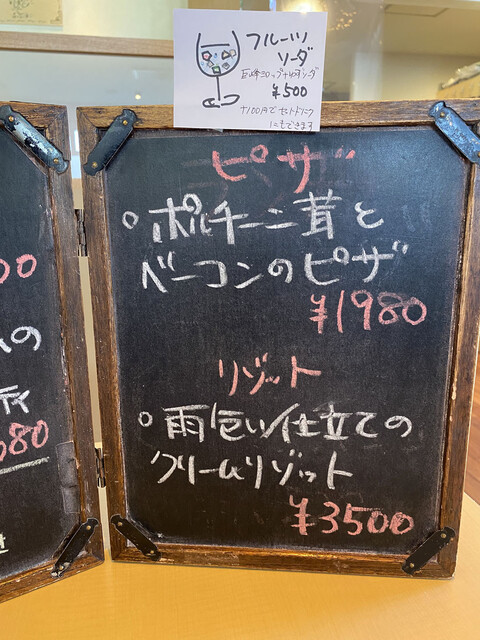 フルーツ
ソーダ
¥500
+100円でセットドリンク
にもできます
ピザ
ポルチーニ茸と
ベーコンのピザ
¥1980
リゾット
仕立ての
クリームリゾット
¥3500
00
の
ティ
680